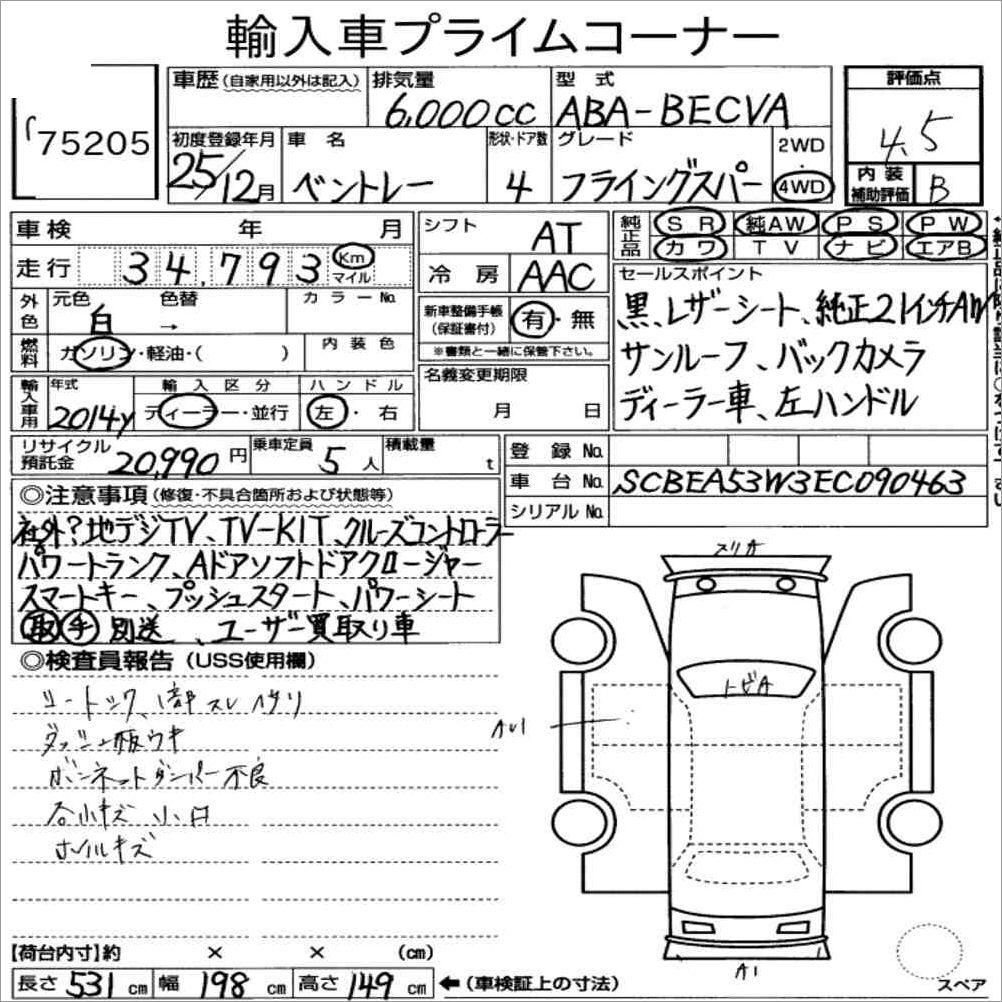 輸入車プライムコーナー
75205
車歴(自家用以外は記入) 排気量 型式 評価点
6,000cc ABA-BECVA 4.5
初度登録年月 車名 形状・ドア数 グレード 2WD・4WD
25/12月 ベントレー 4 フライングスパー
内装補助評価 B
車検 年 月 シフト AT 純正品 SR 純AW PS PW
カワ TV ナビ エアB
走行 34,793 Km マイル 冷房 AAC
セールスポイント
外色 元色 白 色替 → カラーNo.
新車整備手帳(保証書付) 有・無
※書類と一緒に保管下さい。
黒、レザーシート、純正21インチAW
サンルーフ、バックカメラ
ディーラー車、左ハンドル
燃料 ガソリン・軽油・( ) 内装色
名義変更期限 月 日
輸入車用 年式 2014y 輸入区分 ディーラー・並行 ハンドル 左・右
リサイクル預託金 20,990円 乗車定員 5人 積載量 t
登録No.
車台No. SCBEA53W3EC090463
シリアルNo.
◎注意事項(修復・不具合箇所および状態等)
社外?地デジTV、TV-KIT、クルーズコントローラー
パワートランク、Aドアソフトドアクロージャー
スマートキー、プッシュスタート、パワーシート
取 手 別送、ユーザー買取り車
◎検査員報告(USS使用欄)
シートシワ、スレ
ダッシュ板ウキ
ボンネットダンパー不良
各小キズ 小凹
ホイルキズ
スリA
トビA
AU1
A1
スペア
【荷台内寸】約 × × (cm)
長さ 531 cm 幅 198 cm 高さ 149 cm ←(車検証上の寸法)